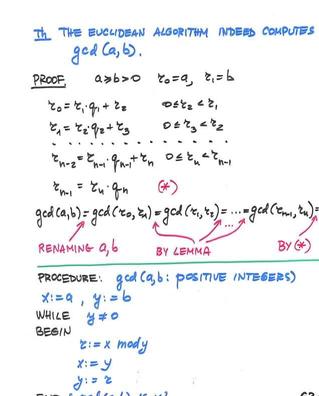 Th THE EUCLIDEAN ALGORITHM INDEED COMPUTES
gcd (a,b).
PROOF. a≥b>0 r₀=a, r₁=b
r₀=r₁·q₁+r₂ 0≤r₂<r₁
r₁=r₂·q₂+r₃ 0≤r₃<r₂
. . . . . . . . . . . . . .
rₙ₋₂=rₙ₋₁·qₙ₋₁+rₙ 0≤rₙ<rₙ₋₁
rₙ₋₁=rₙ·qₙ (*)
gcd(a,b)=gcd(r₀,r₁)=gcd(r₁,r₂)=...=gcd(rₙ₋₁,rₙ)=
...
RENAMING a,b BY LEMMA BY (*)
PROCEDURE: gcd(a,b: POSITIVE INTEGERS)
x:=a, y:=b
WHILE y≠0
BEGIN
r:=x mod y
x:=y
y:=r